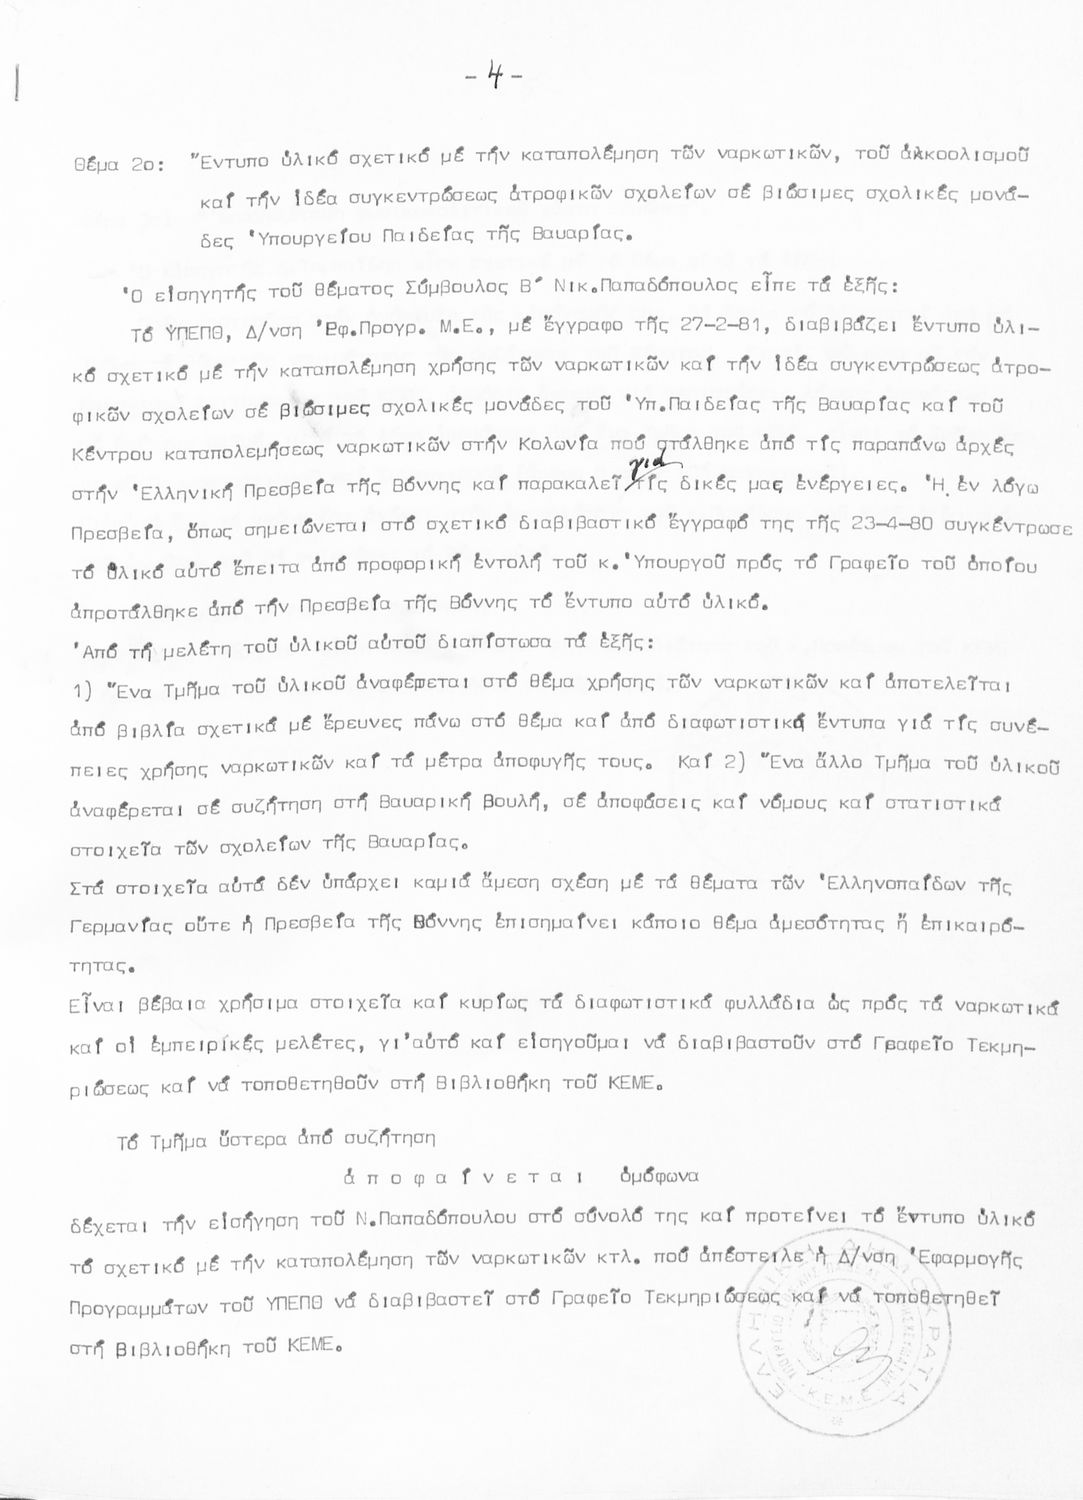 - 4 -
Θέμα 2ο: Ἔντυπο ὑλικό σχετικό μέ τήν καταπολέμηση τῶν ναρκωτικῶν, τοῦ ἀλκοολισμοῦ
καί τήν ἰδέα συγκεντρώσεως ἀτροφικῶν σχολείων σέ βιώσιμες σχολικές μονά-
δες Ὑπουργείου Παιδείας τῆς Βαυαρίας.
Ὁ εἰσηγητής τοῦ θέματος Σύμβουλος Β´ Νικ.Παπαδόπουλος εἶπε τά ἑξῆς:
Τό ὙΠΕΠΘ, Δ/νση Ἐφ.Προγρ. Μ.Ε., μέ ἔγγραφο τῆς 27-2-81, διαβιβάζει ἔντυπο ὑλι-
κό σχετικό μέ τήν καταπολέμηση χρήσης τῶν ναρκωτικῶν καί τήν ἰδέα συγκεντρώσεως ἀτρο-
φικῶν σχολείων σέ βιώσιμες σχολικές μονάδες τοῦ Ὑπ.Παιδείας τῆς Βαυαρίας καί τοῦ
Κέντρου καταπολεμήσεως ναρκωτικῶν στήν Κολωνία πού στάλθηκε ἀπό τίς παραπάνω ἀρχές
στήν Ἑλληνική Πρεσβεία τῆς Βόννης καί παρακαλεῖ γιά τίς δικές μας ἐνέργειες. Ἡ ἐν λόγω
Πρεσβεία, ὅπως σημειώνεται στό σχετικό διαβιβαστικό ἔγγραφό της τῆς 23-4-80 συγκέντρωσε
τό ὑλικό αὐτό ἔπειτα ἀπό προφορική ἐντολή τοῦ κ.Ὑπουργοῦ πρός τό Γραφεῖο τοῦ ὁποίου
ἀπροτάλθηκε ἀπό τήν Πρεσβεία τῆς Βόννης τό ἔντυπο αὐτό ὑλικό.
Ἀπό τή μελέτη τοῦ ὑλικοῦ αὐτοῦ διαπίστωσα τά ἑξῆς:
1) Ἕνα Τμῆμα τοῦ ὑλικοῦ ἀναφέρεται στό θέμα χρήσης τῶν ναρκωτικῶν καί ἀποτελεῖται
ἀπό βιβλία σχετικά μέ ἔρευνες πάνω στό θέμα καί ἀπό διαφωτιστικά ἔντυπα γιά τίς συνέ-
πειες χρήσης ναρκωτικῶν καί τά μέτρα ἀποφυγῆς τους. Καί 2) Ἕνα ἄλλο Τμῆμα τοῦ ὑλικοῦ
ἀναφέρεται σέ συζήτηση στή Βαυαρική Βουλή, σέ ἀποφάσεις καί νόμους καί στατιστικά
στοιχεῖα τῶν σχολείων τῆς Βαυαρίας.
Στά στοιχεῖα αὐτά δέν ὑπάρχει καμιά ἄμεση σχέση μέ τά θέματα τῶν Ἑλληνοπαίδων τῆς
Γερμανίας οὔτε ἡ Πρεσβεία τῆς Βόννης ἐπισημαίνει κάποιο θέμα ἀμεσότητας ἤ ἐπικαιρό-
τητας.
Εἶναι βέβαια χρήσιμα στοιχεῖα καί κυρίως τά διαφωτιστικά φυλλάδια ὡς πρός τά ναρκωτικά
καί οἱ ἐμπειρικές μελέτες, γι'αὐτό καί εἰσηγοῦμαι νά διαβιβαστοῦν στό Γραφεῖο Τεκμη-
ριώσεως καί νά τοποθετηθοῦν στή Βιβλιοθήκη τοῦ ΚΕΜΕ.
Τό Τμῆμα ὕστερα ἀπό συζήτηση
ἀ π ο φ α ί ν ε τ α ι ὁμόφωνα
δέχεται τήν εἰσήγηση τοῦ Ν.Παπαδόπουλου στό σύνολό της καί προτείνει τό ἔντυπο ὑλικό
τό σχετικό μέ τήν καταπολέμηση τῶν ναρκωτικῶν κτλ. πού ἀπέστειλε ἡ Δ/νση Ἐφαρμογῆς
Προγραμμάτων τοῦ ΥΠΕΠΘ νά διαβιβαστεῖ στό Γραφεῖο Τεκμηριώσεως καί νά τοποθετηθεῖ
στή Βιβλιοθήκη τοῦ ΚΕΜΕ.
ΕΛΛΗΝΙΚΗ ΔΗΜΟΚΡΑΤΙΑ
Κ.Ε.Μ.Ε.